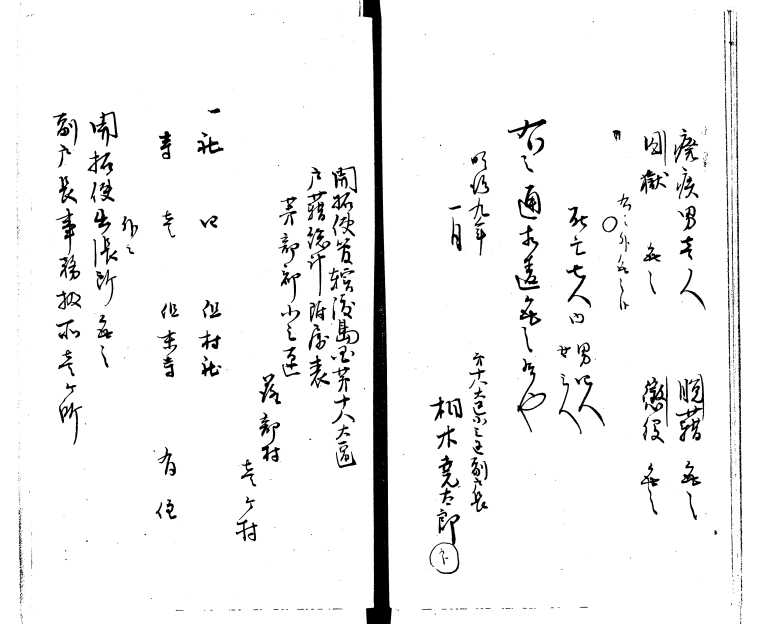 廃疾男壱人 脱籍無之
囚獄 無之 懲役 無之
右之外無之
死亡七人内 男四人 女三人
右之通相違無之候也
明治九年
一月
第十八大区小三区副戸長
相木堯太郎
開拓使管轄後島国第十八大区
戸籍総計附属表
茅部郡小三区
落部村
壱ヶ村
一社 四 但村社
寺 壱 但末寺 有住
開拓使出張所 無之
副戸長事務扱所壱ヶ所